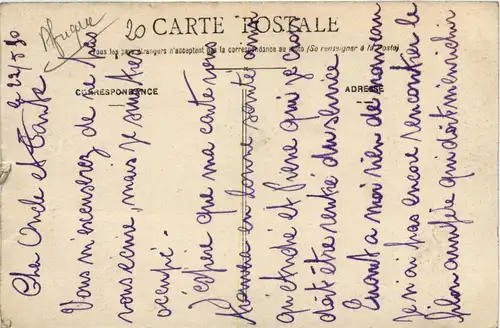 Afrique
20
CARTE POSTALE
Tous les pays étrangers n'acceptent pas la correspondance au recto (Se renseigner à la Poste)
CORRESPONDANCE
ADRESSE
le 22-5-30
Cher Oncle et Tante
Vous m'excuserez de ne pas
vous écrire, mais je suis très
occupé.
J'espère que ma carte vous
trouve en bonne santé ainsi
qu'André et Pierre qui je crois
doit être rentré du service
Quant à moi rien de nouveau
je n'ai pas encore rencontrer le
filon année qui doit m'enrichir